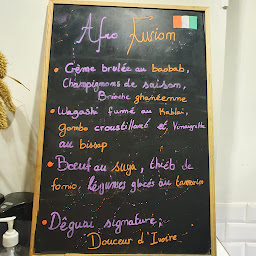 Afro Fusion
• Crème brulée au baobab,
Champignons de saison,
Brioche ghanéenne
• Wagashi fumé au Kablai,
gombo croustillant et, Vinaigrette
au bissap
• Bœuf au suya, thiéb de
fonio, Légumes glacés au tamarin
• Dêguai signature,
Douceur d'Ivoire